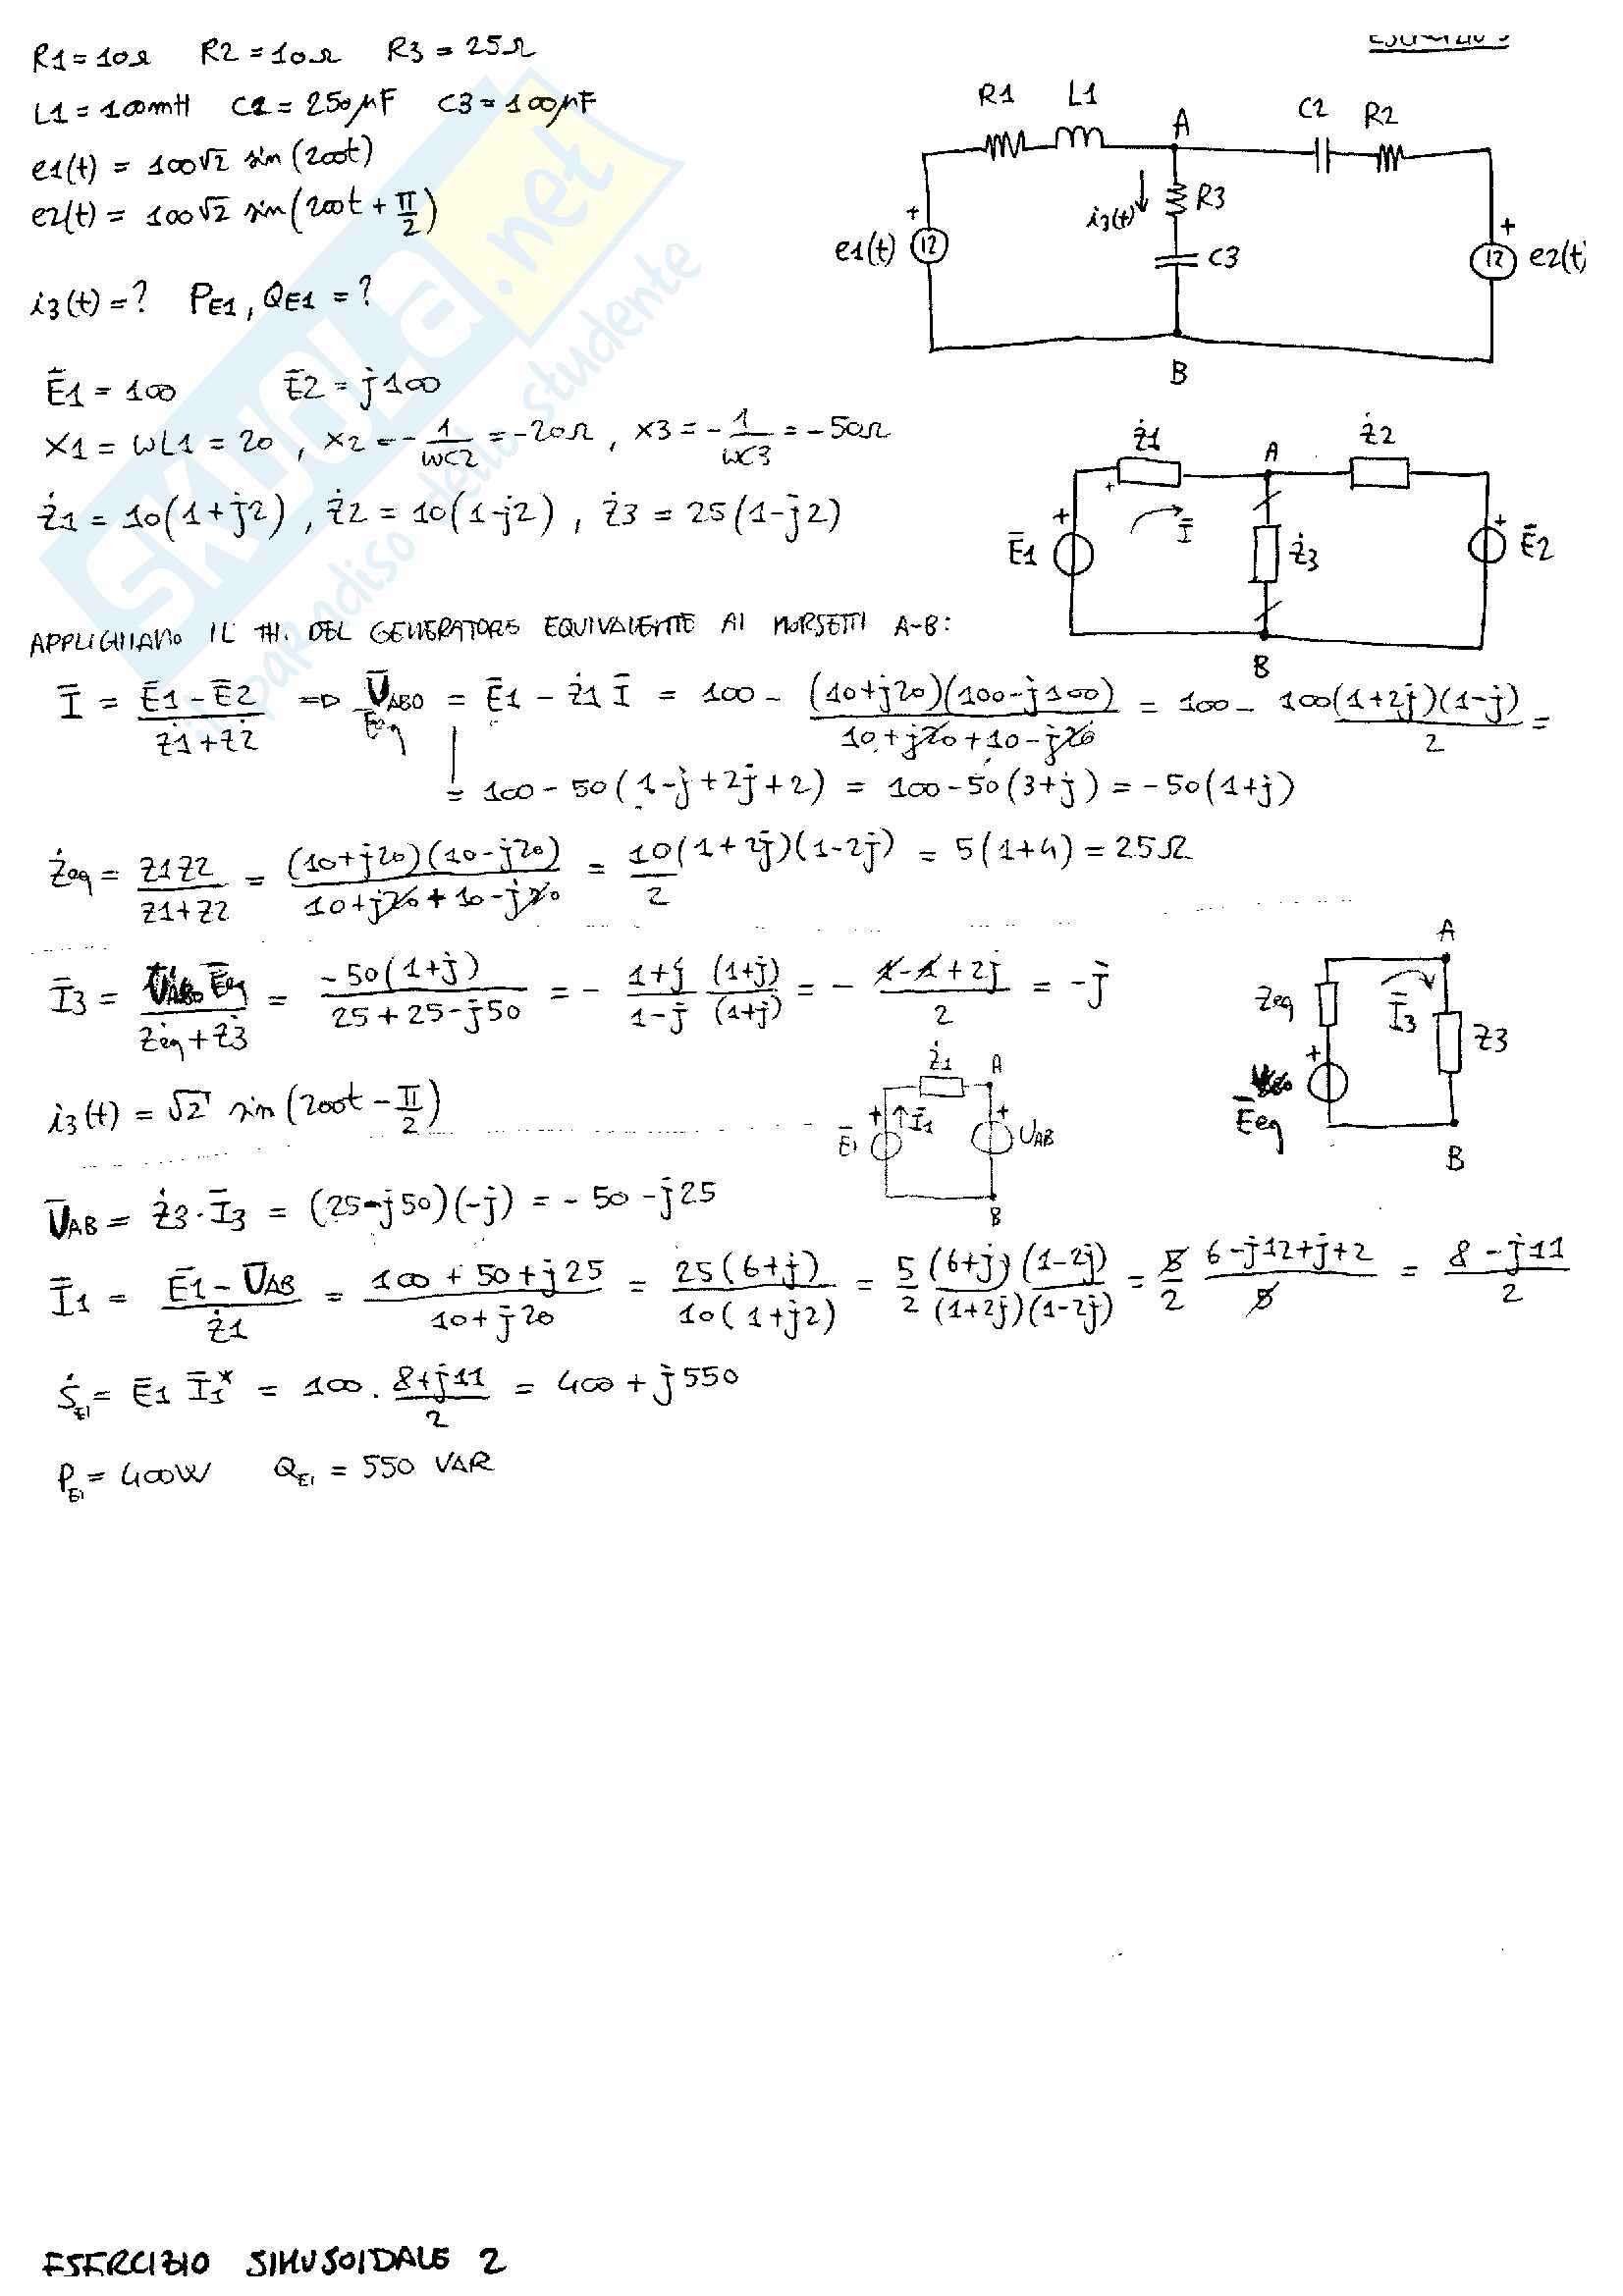 R1=10Ω R2=10Ω R3=25Ω
L1=100mH C2=250μF C3=100μF
e1(t) = 100√2 sin(200t)
e2(t) = 100√2 sin(200t + π/2)
i3(t)=? PE1, QE1 = ?
R1 L1 A C2 R2
i3(t) R3
e1(t) 12 C3 12 e2(t)
B
Ē1 = 100 Ē2 = j100
X1 = ωL1 = 20 , X2 = -1/ωC2 = -20Ω , X3 = -1/ωC3 = -50Ω
Ż1 = 10(1+j2) , Ż2 = 10(1-j2) , Ż3 = 25(1-j2)
Ż1 A Ż2
Ē1 Ī Ż3 Ē2
B
APPLICHIAMO IL TH. DEL GENERATORE EQUIVALENTE AI MORSETTI A-B:
Ī = (Ē1-Ē2)/(Ż1+Ż2) => ŪABO = Ē1 - Ż1 Ī = 100 - (10+j20)(100-j100)/(10+j20+10-j20) = 100 - 100(1+2j)(1-j)/2 =
Eeq
= 100-50(1-j+2j+2) = 100-50(3+j) = -50(1+j)
Żeq = Z1Z2/(Z1+Z2) = (10+j20)(10-j20)/(10+j20+10-j20) = 10(1+2j)(1-2j)/2 = 5(1+4) = 25Ω
Ī3 = Ēeq/(Żeq+Ż3) = -50(1+j)/(25+25-j50) = - (1+j)/(1-j) (1+j)/(1+j) = - (1-1+2j)/2 = -j
A
Zeq Ī3 Z3
Ēeq
B
i3(t) = √2 sin(200t - π/2)
Ż1 A
Ē1 Ī1 UAB
B
ŪAB = Ż3·Ī3 = (25-j50)(-j) = -50-j25
Ī1 = (Ē1-ŪAB)/Ż1 = (100+50+j25)/(10+j20) = 25(6+j)/10(1+j2) = 5/2 (6+j)(1-2j)/(1+2j)(1-2j) = 5/2 (6-j12+j+2)/5 = (8-j11)/2
ṠE1 = Ē1 Ī1* = 100 · (8+j11)/2 = 400+j550
PE1 = 400W QE1 = 550 VAR
ESERCIZIO SINUSOIDALE 2
SKUOLA.net
paradiso dello studente